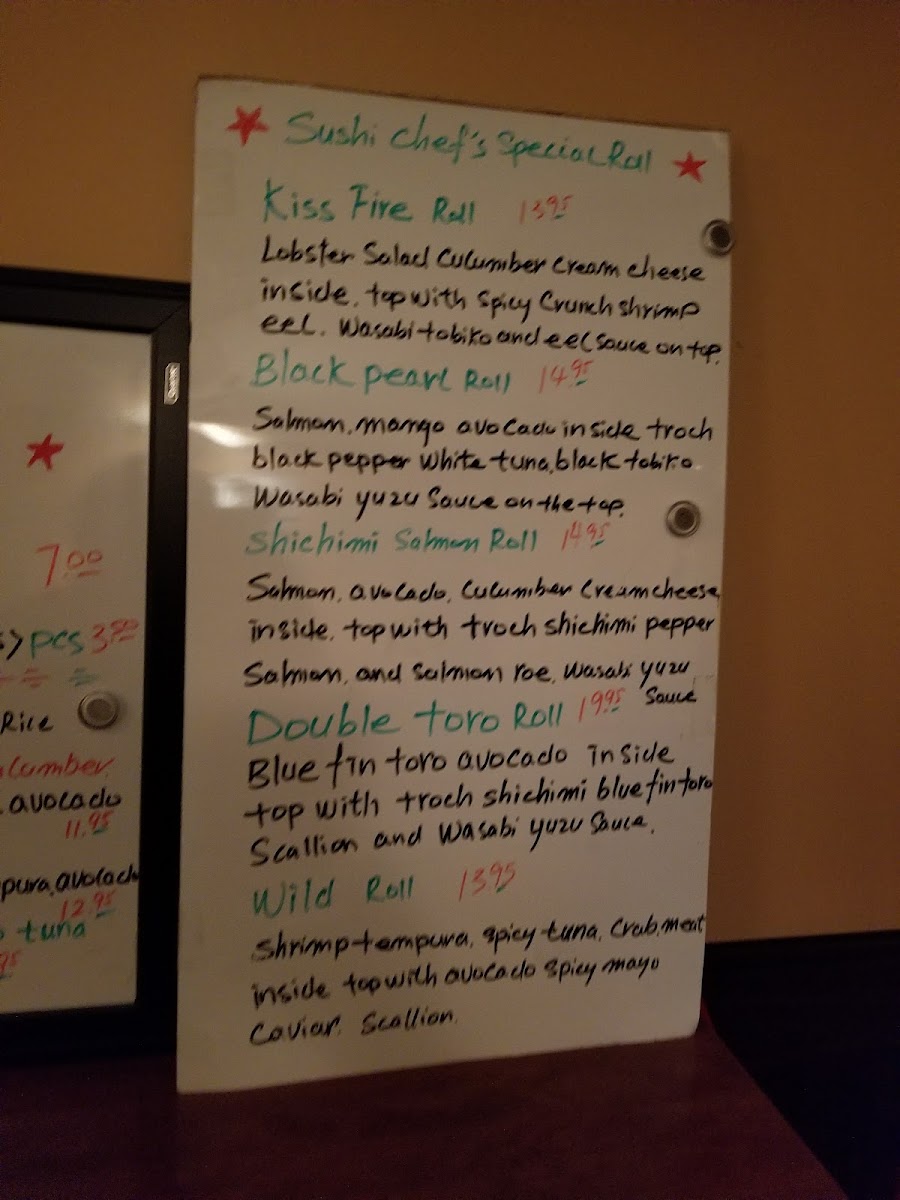 Sushi Chef's Special Roll
Kiss Fire Roll 13.95
Lobster Salad Culumber Cream cheese
inside, top with Spicy Crunch shrimp
eel. Wasabi tobiko and eel Sauce on top.
Black pearl Roll 14.95
Salmon, mango avocado inside troch
black pepper White tuna, black tobiko
Wasabi yuzu Sauce on the top.
Shichimi Salmon Roll 14.95
Salmon, avocado, Culumber Cream cheese
inside, top with troch shichimi pepper
Salmon, and salmon roe, Wasabi yuzu
Sauce
Double toro Roll 19.95
Blue fin toro avocado inside
top with troch shichimi blue fin toro
Scallion and Wasabi yuzu Sauce.
Wild Roll 13.95
Shrimp tempura, spicy tuna, Crab meat
inside top with avocado spicy mayo
Caviar. Scallion.
Quartet
7.00
pcs
Rice
lumber
avocado
11.95
pura, avocado
12.95
tuna